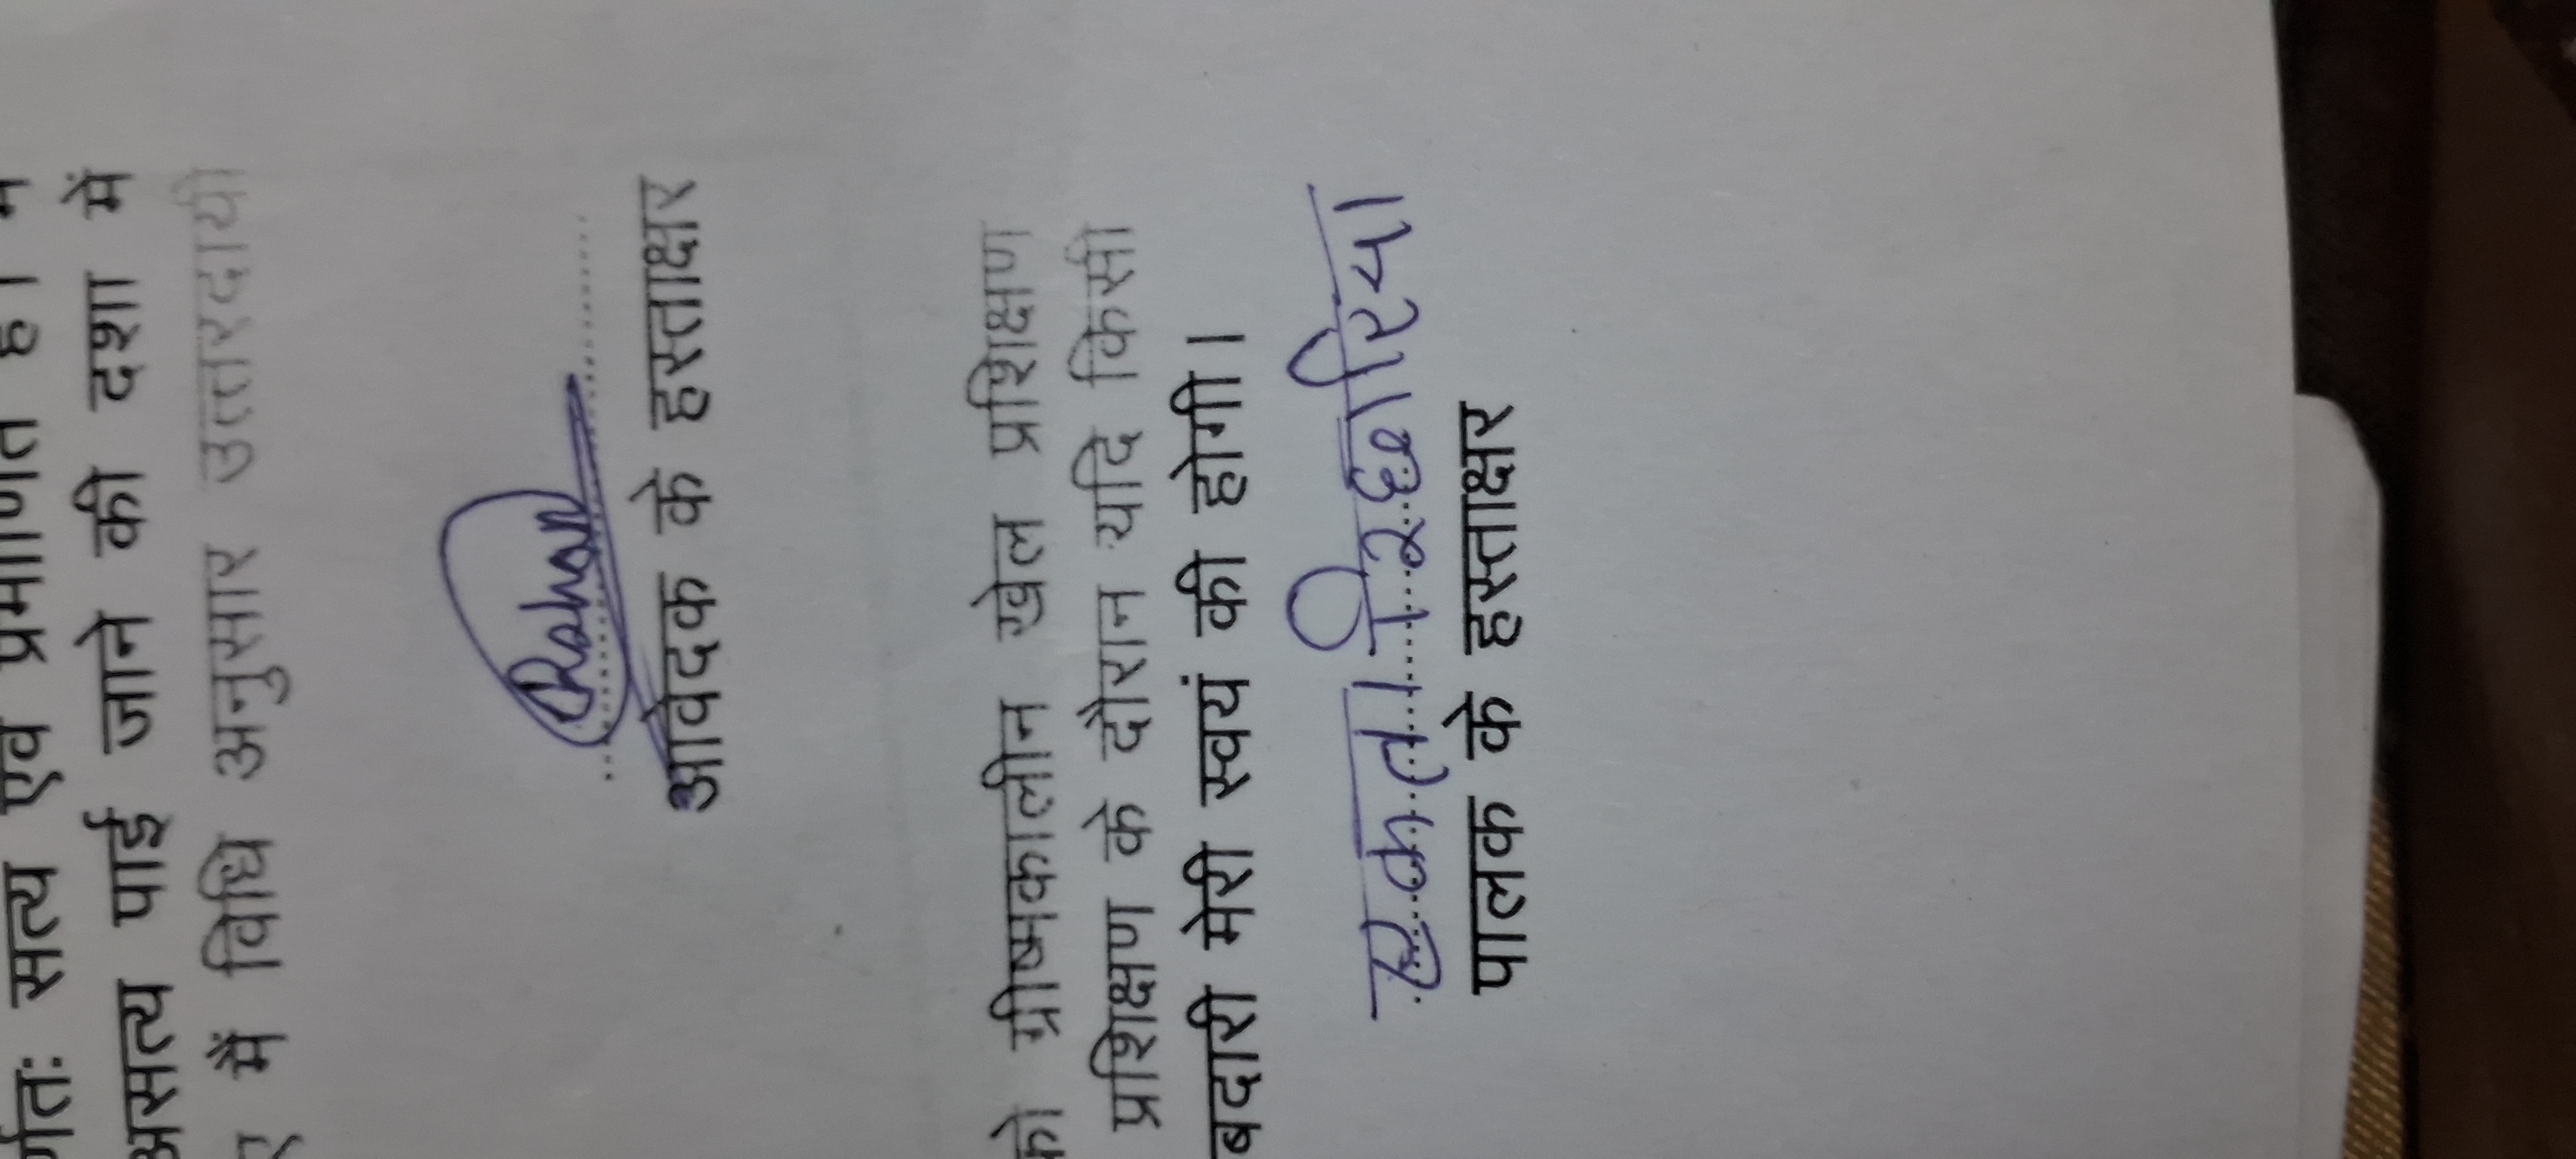 र्णतः सत्य एवं प्रमाणित है। मैं
असत्य पाई जाने की दशा में
मैं विधि अनुसार उत्तरदायी
Rahan
आवेदक के हस्ताक्षर
को ग्रीष्मकालीन खेल प्रशिक्षण
प्रशिक्षण के दौरान यदि किसी
बदारी मेरी स्वयं की होगी।
पालक के हस्ताक्षर